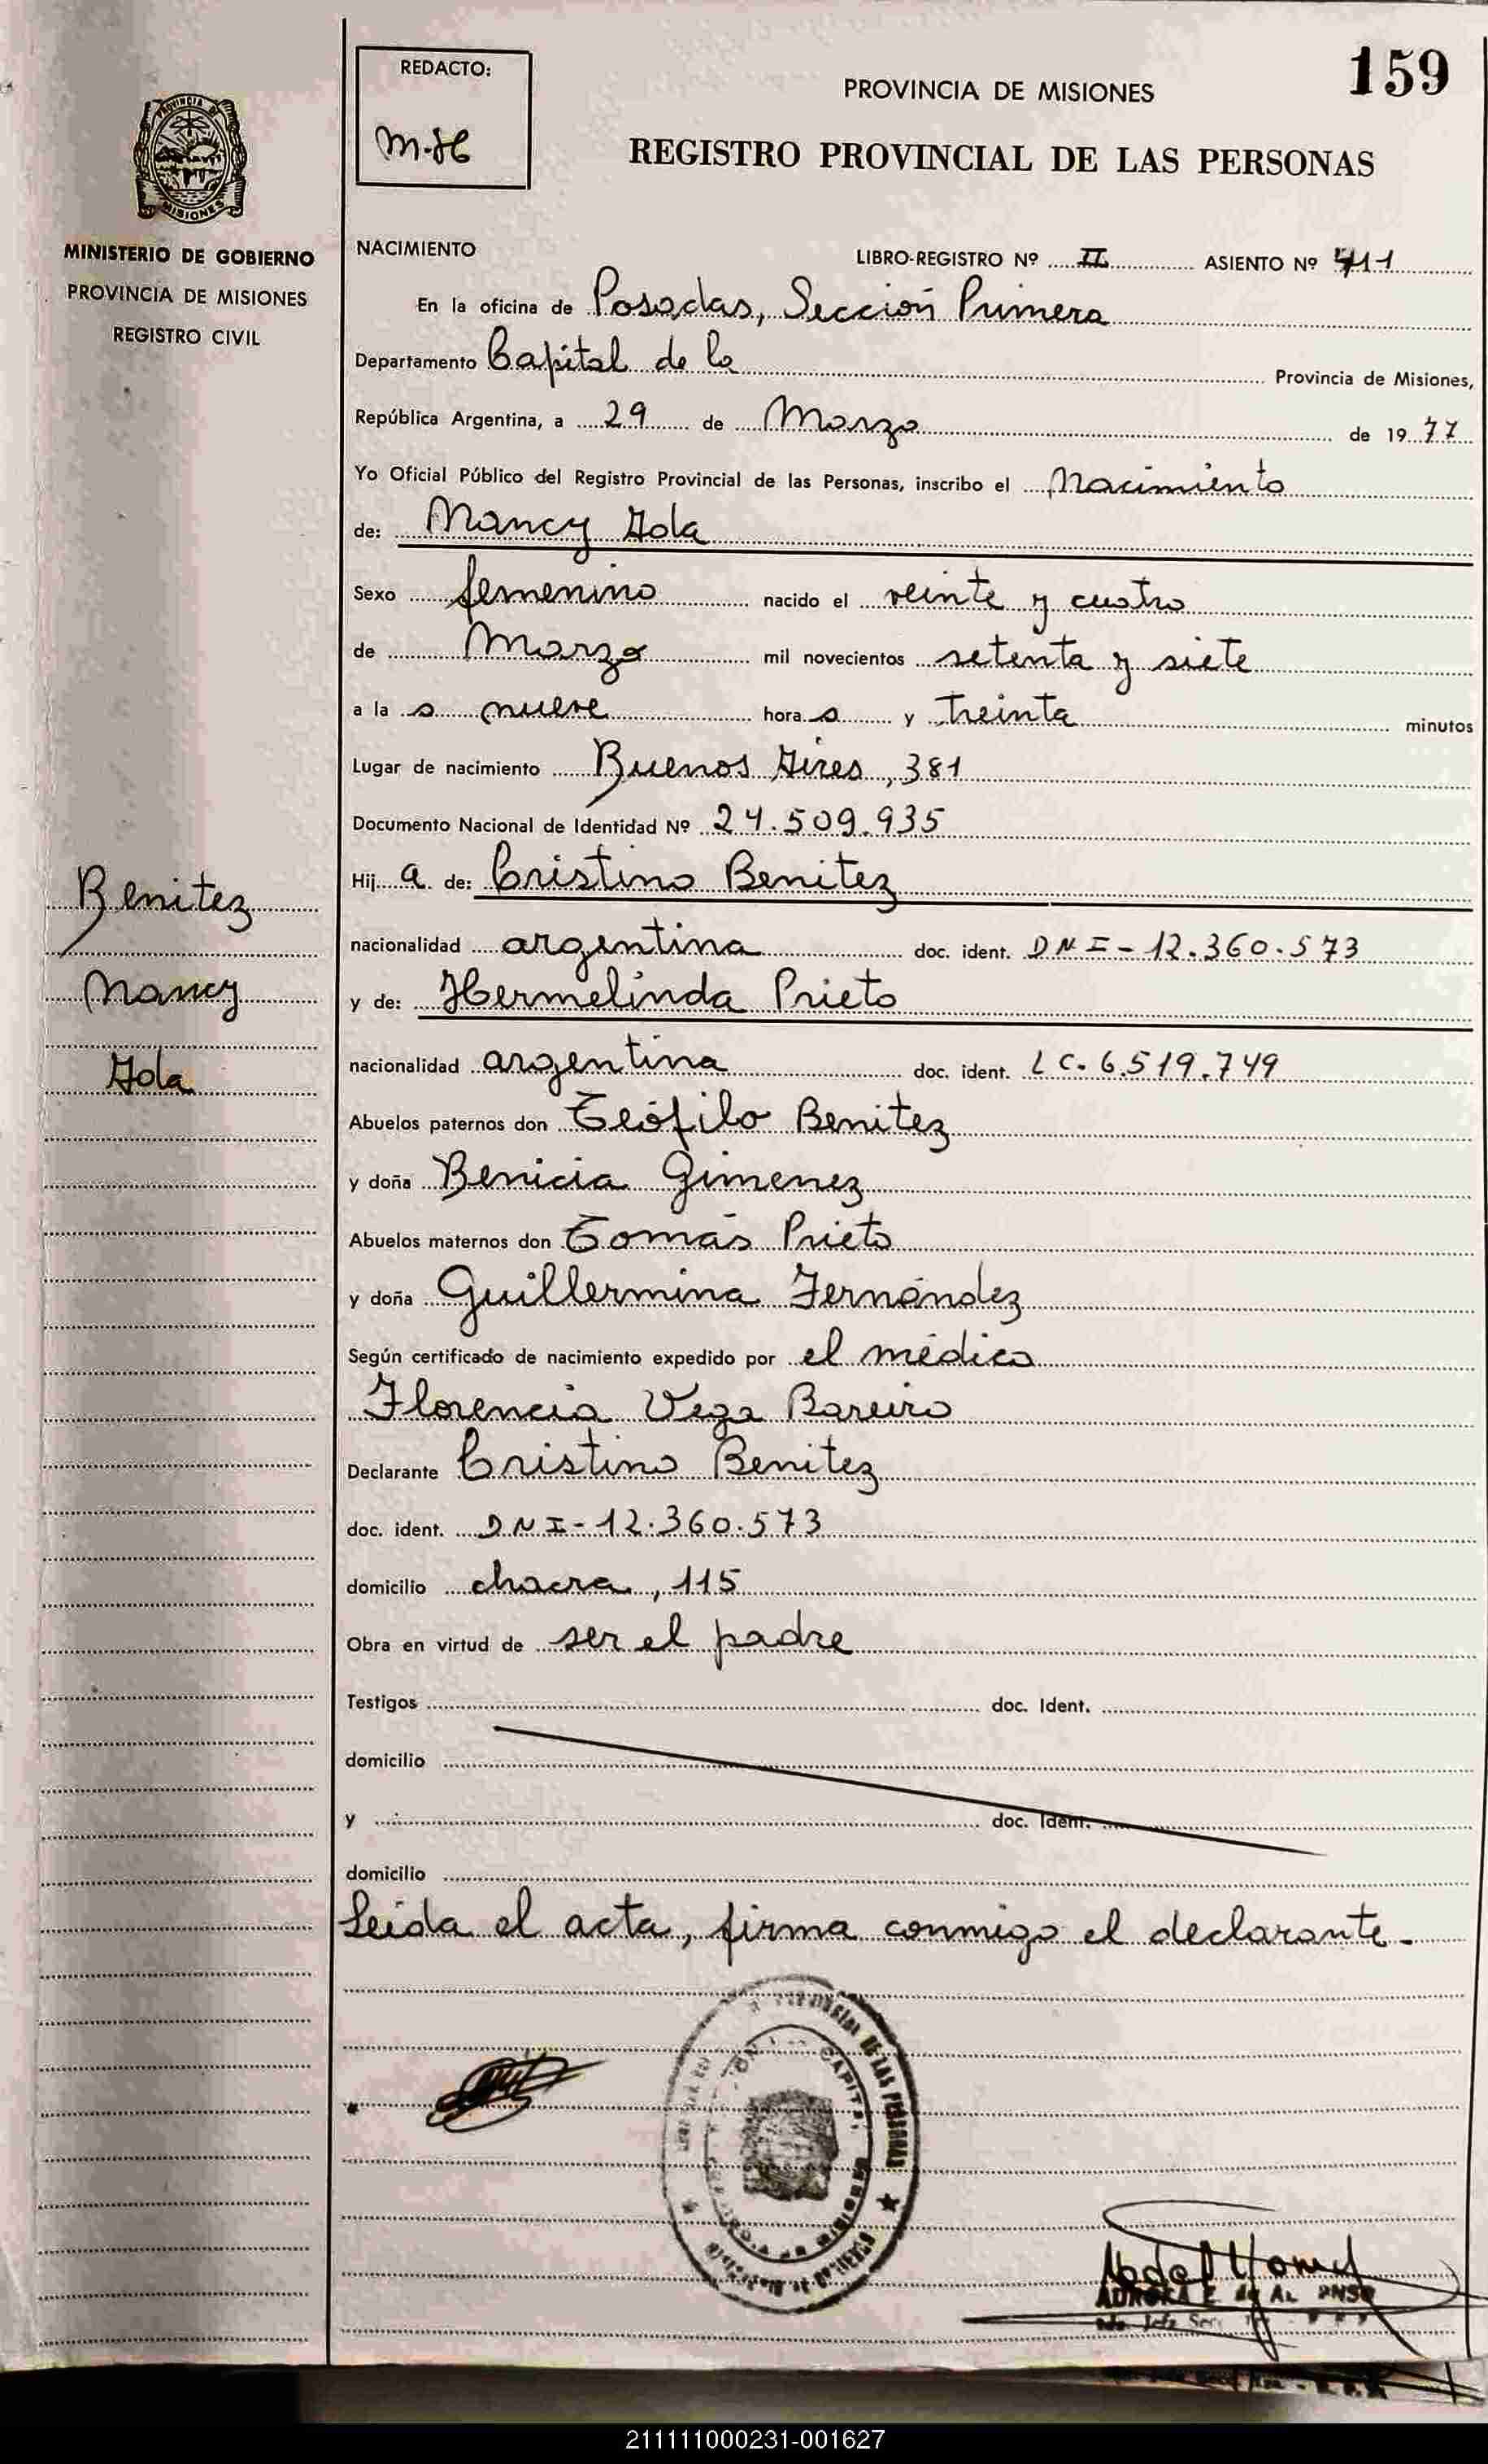 159
REDACTO:
M-H
PROVINCIA DE MISIONES
REGISTRO PROVINCIAL DE LAS PERSONAS
PROVINCIA DE
MISIONES
MINISTERIO DE GOBIERNO
PROVINCIA DE MISIONES
REGISTRO CIVIL
NACIMIENTO
LIBRO-REGISTRO Nº II ASIENTO Nº 711
En la oficina de Posadas, Sección Primera
Departamento Capital de la Provincia de Misiones,
República Argentina, a 29 de Marzo de 1977
Yo Oficial Público del Registro Provincial de las Personas, inscribo el Nacimiento
de: Nancy Aola
Sexo femenino nacido el veinte y cuatro
de Marzo mil novecientos setenta y siete
a la s nueve hora s y treinta minutos
Lugar de nacimiento Buenos Aires, 381
Documento Nacional de Identidad Nº 24.509.935
Hij a de: Cristino Benitez
nacionalidad argentina doc. ident. DNI-12.360.573
y de: Hermelinda Prieto
nacionalidad argentina doc. ident. LC. 6.519.749
Abuelos paternos don Teófilo Benitez
y doña Benicia Gimenez
Abuelos maternos don Tomás Prieto
y doña Guillermina Fernández
Según certificado de nacimiento expedido por el médico
Florencia Vega Bareiro
Declarante Cristino Benitez
doc. ident. DNI-12.360.573
domicilio chacra, 115
Obra en virtud de ser el padre
Testigos doc. Ident.
domicilio
y doc. Ident.
domicilio
Leída el acta, firma conmigo el declarante.
Benitez
Nancy
Aola
DE LAS PERSONAS
211111000231-001627